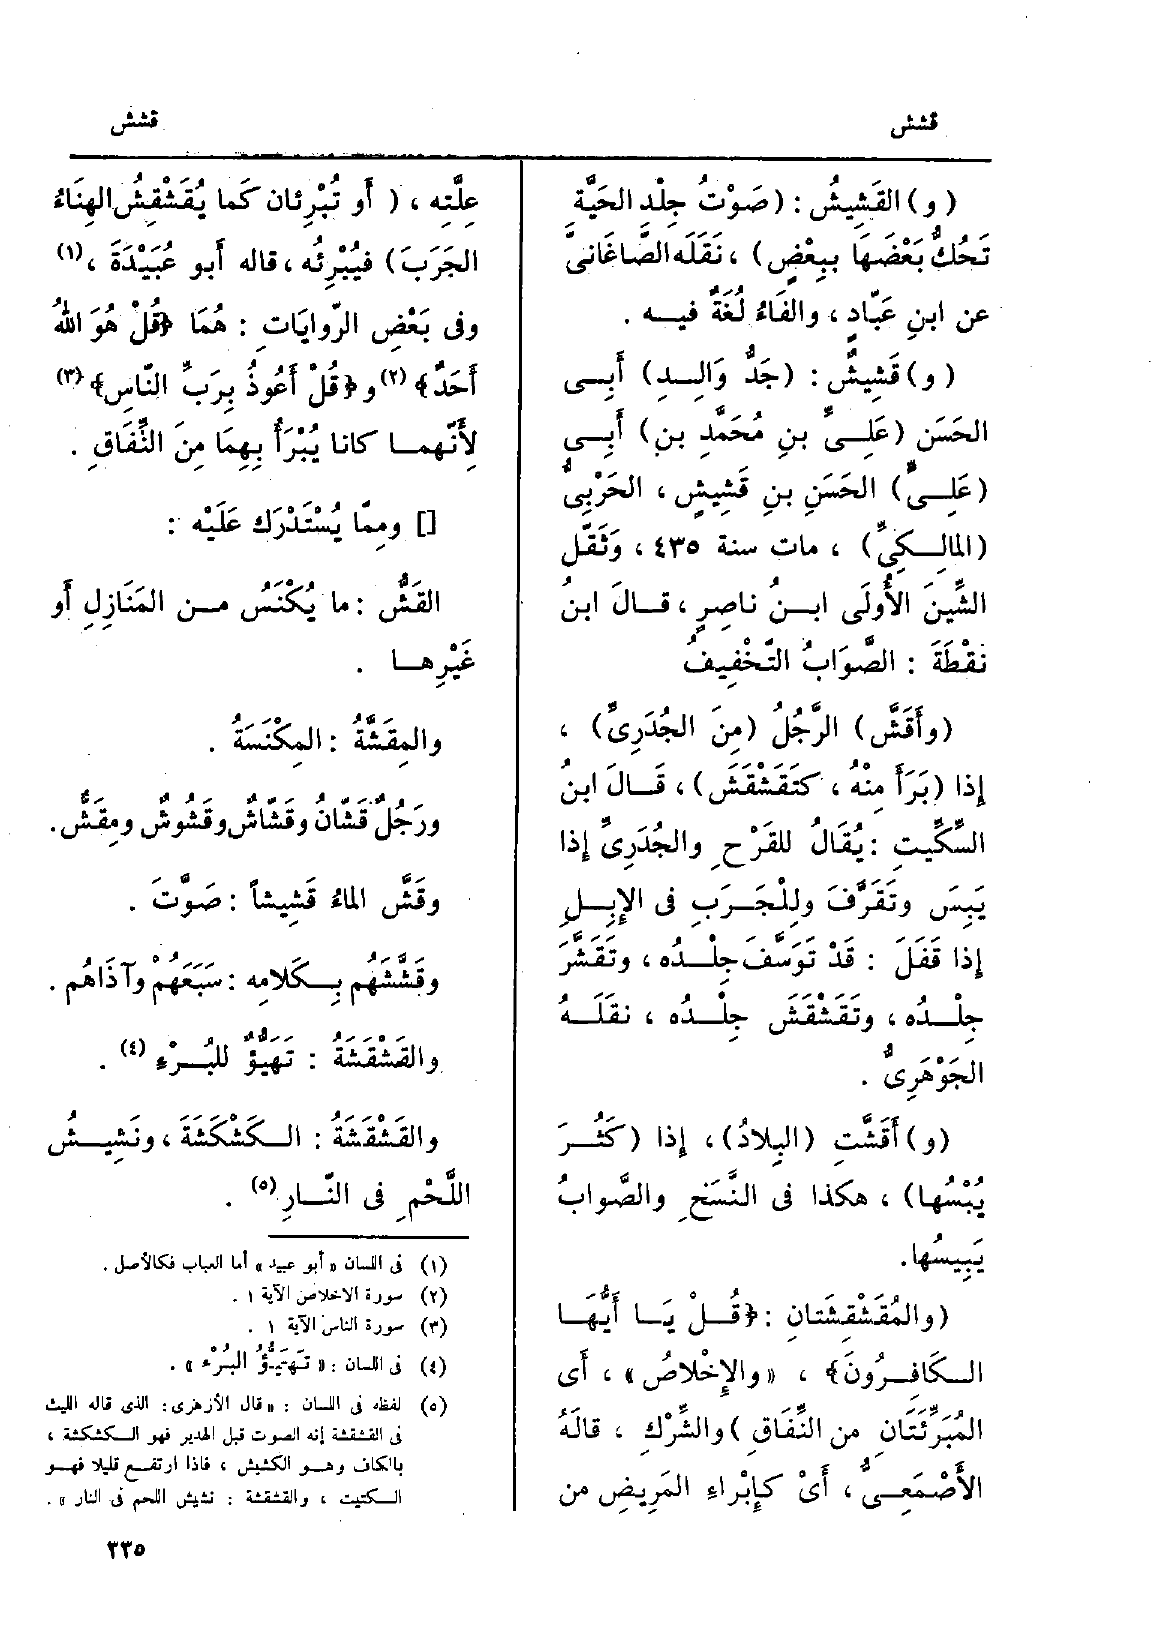 قشش
قشش
(و) القَشِيشُ : (صَوْتُ جِلْدِ الحَيَّةِ
تَحُكُّ بَعْضَهَا بِبعْضٍ) ، نَقَلَه الصّاغَانىُّ
عن ابنِ عَبّادٍ ، والفَاءُ لُغَةٌ فيه .
(و) قَشِيشٌ : (جَدُّ وَالِدِ) أَبِى
الحَسَن (عَلِىِّ بنِ مُحَمَّدِ بنِ) أَبِى
(عَلِىٍّ) الحَسَنِ بنِ قَشِيشٍ ، الحَرْبِىُّ
(المالِكِىِّ) ، مات سنة ٤٣٥ ، وَثَقَّل
الشِّينَ الأُولَى ابنُ ناصِرٍ ، قالَ ابنُ
نقْطَةَ : الصَّوَابُ التَّخْفِيفُ
(وأَقَشَّ) الرَّجُلُ (مِنَ الجُدَرِىِّ) ،
إِذا (بَرَأَ مِنْهُ ، كتَقَشْقَشَ) ، قَالَ ابنُ
السِّكِّيتِ : يُقَالُ للقَرْحِ والجُدَرِىِّ إِذا
يَبِسَ وتَقَرَّفَ وللْجَرَبِ فى الإِبِلِ
إِذا قَفَلَ : قَدْ تَوَسَّفَ جِلْدُه ، وتَقَشَّرَ
جِلْدُه ، وتَقَشْقَشَ جِلْدُه ، نقَلَهُ
الجَوْهَرِىُّ .
(و) أَقَشَّتِ (البِلادُ) ، إِذا (كَثُرَ
يُبْسُها) ، هكذا فى النُّسَخِ والصَّوابُ
يَبِيسُها.
(والمُقَشْقِشَتانِ : ﴿قُلْ يَا أَيُّهَا
الكَافِرُونَ﴾ ، «والإِخْلاصُ» ، أَى
المُبَرِّئَتَان من النِّفَاق) والشِّرْك ، قالَهُ
الأَصْمَعِىُّ ، أَىْ كإِبْراءِ المَرِيضِ من
عِلَّتِه ، (أَو تُبْرِئان كَما يُقَشْقِشُ الهِنَاءُ
الجَرَبَ) فيُبْرِئُه ، قاله أَبو عُبَيْدَةَ ،(١)
وفى بَعْضِ الرِّوايَاتِ : هُمَا ﴿قُلْ هُوَ اللهُ
أَحَدٌ﴾ (٢) و ﴿قُلْ أَعُوذُ بِرَبِّ النَّاسِ﴾ (٣)
لأَنَّهما كانا يُبْرَأُ بِهِمَا مِنَ النِّفَاقِ .
[] ومِمّا يُسْتَدْرَك عَلَيْه :
القَشُّ : ما يُكْنَسُ من المَنَازِلِ أَو
غَيْرِها .
والمِقَشَّةُ : المِكْنَسَةُ .
ورَجُلٌ قَشّانُ وقَشّاشٌ وقَشُوشٌ ومِقَشٌّ.
وقَشَّ الماءُ قَشِيشاً : صَوَّتَ .
وقَشَّشَهُم بِكَلامِه : سَبَعَهُمْ وآذَاهُم .
والقَشْقَشَةُ : تَهَيُّؤٌ للبُرْءِ (٤) .
والقَشْقَشَةُ : الكَشْكَشَةَ ، ونَشِيشُ
اللَّحْمِ فى النّارِ (٥) .
(١) فى اللسان «أبو عبيد» أما العباب فكالأصل .
(٢) سورة الاخلاص الآية ١ .
(٣) سورة الناس الآية ١ .
(٤) فى اللسان : « تَهَيُّؤُ البُرْءِ » .
(٥) لفظه فى اللسان : «قال الأزهرى : الذى قاله الليث
فى القشقشة إنه الصوت قبل الهدير فهو الكشكشة ،
بالكاف وهو الكشيش ، فاذا ارتفع قليلا فهو
الكتيت ، والقشقشة : نشيش اللحم فى النار » .
٣٣٥